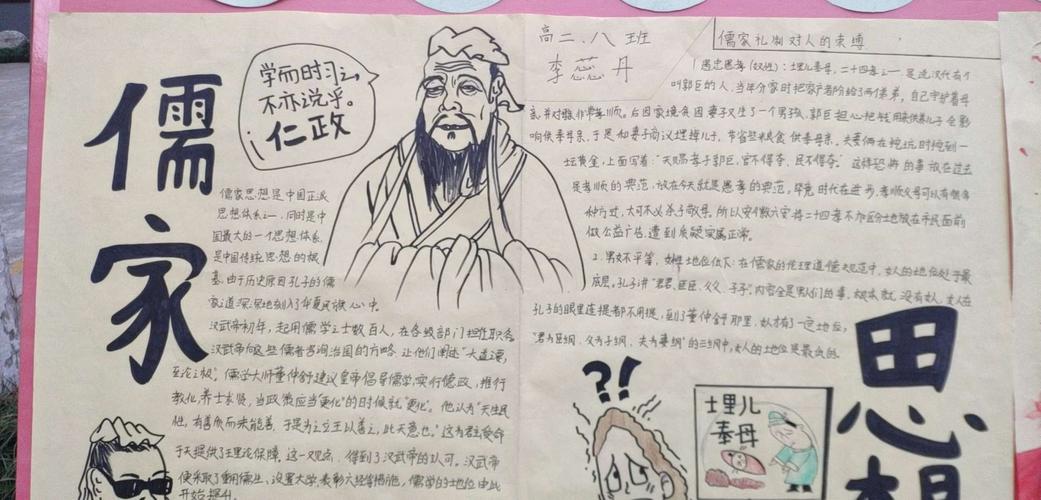 儒家
学而时习之
不亦说乎。
仁政
高二.八班
李蕊丹
儒家思想是中国正派
思想体系之一，同时是中
国最大的一个思想体系，
是中国传统思想的根
基，由于历史原因孔子的儒
家之道深深地刻入了华夏民族心中。
汉武帝初年，起用儒学之士数百人，在各级部门担任职务，
汉武帝向这些儒者咨询治国的方略，让他们阐述"大道之要，
至论之极"。儒学大师董仲舒建议皇帝倡导儒学，实行德政，推行
教化，养士求贤，当政策应当"更化"的时候就"更化"。他认为"天生民
性，有善质而未能善，于是为之立王以善之，此天意也。"这为君主受命
于天提供了理论保障。这一观点，得到了汉武帝的认可。汉武帝
便采取了重用儒生、设置太学、表彰六经等措施，儒学的地位由此
开始提升。
儒家礼制对人的束缚
1 愚忠愚孝（奴性）：埋儿奉母，二十四孝之一，是说汉代有个
叫郭巨的人，当年分家时把家产都分给了两个弟弟，自己守护着母
亲，并对母亲非常孝顺。后因家境贫困妻子又生了一个男孩，郭巨担心把钱用来供养儿子会影
响供奉母亲，于是和妻子商议埋掉儿子，节省些粮食供奉母亲。夫妻俩在挖坑时挖到一
坛黄金，上面写着："天赐孝子郭巨，官不得夺，民不得夺。"这样恐怖的事放在过去
是孝顺的典范，放在今天就是愚孝的典范。毕竟时代在进步，孝顺父母可以有很多
种方式，大可不必杀子敬母。所以安徽六安将二十四孝不加区分地放在市民面前
做公益广告，遭到质疑实属正常。
2. 男女不平等，女性地位低下：在儒家的伦理道德规范中，女人的地位处于最
底层。孔子讲"君君、臣臣、父父、子子"，内容全是男人们的事，根本就没有女人，女人在
孔子的眼里连提都不用提，到了董仲舒那里，女人才有了一定地位，
"君为臣纲，父为子纲，夫为妻纲"的三纲中，女人的地位是最低的。
?!
埋儿
奉母
思想